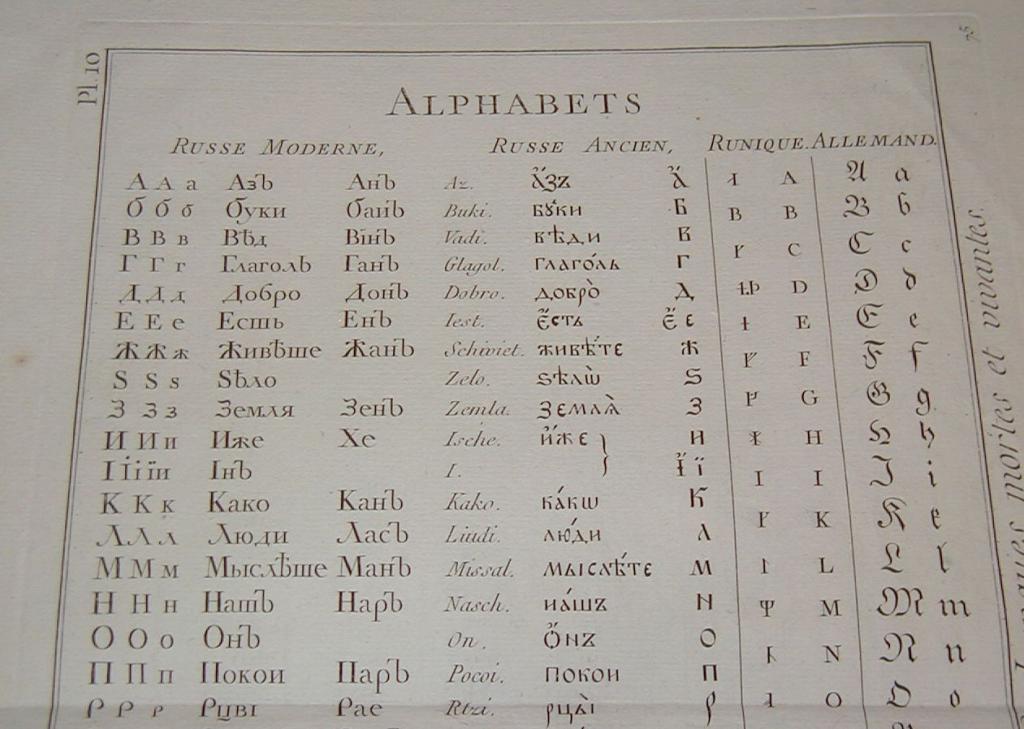 Pl. 10
ALPHABETS
RUSSE MODERNE, RUSSE ANCIEN, RUNIQUE. ALLEMAND.
А А а Азъ Анъ Az. А҆́зъ А҆́ ᛆ A A a
Б б б Буки Банъ Buki. буки Б ᛒ B B b
В В в Вѣд Вінъ Vadi. вѣди В ᚴ C C c
Г Г г Глаголь Ганъ Glagol. глаго́ль Г D D d
Д Д д Добро Донъ Dobro. добро̀ Д E E e
Е Е е Есть Енъ Iest. Є҆́сть Є҆́ є F F f
Ж Ж ж Живѣте Жанъ Schiviet. живѣ́те Ж ᚵ G G g
Ѕ Ѕ ѕ Ѕѣло Zelo. ѕѣлѡ̀ Ѕ H H h
З З з Земля Зенъ Zemla. землѧ̀ З ᛁ I I i
И И и Иже Хе Ische. и҆́же И ᚴ K K k
І і ї Інъ I. І҆́ ї ᛚ L L l
К К к Како Канъ Kako. ка́кѡ К ᛘ M M m
Л Л л Люди Ласъ Liudi. лю́ди Л N N n
М М м Мыслѣте Манъ Missal. мыслѣ́те М O O o
Н Н н Нашъ Наръ Nasch. на́шъ Н
О О о Онъ On. Ѻ҆́нъ О
П П п Покои Паръ Pocoi. покои П
Р Р р Рцы Рае Rtzi. рцы̀ Р
mortes et vivantes.